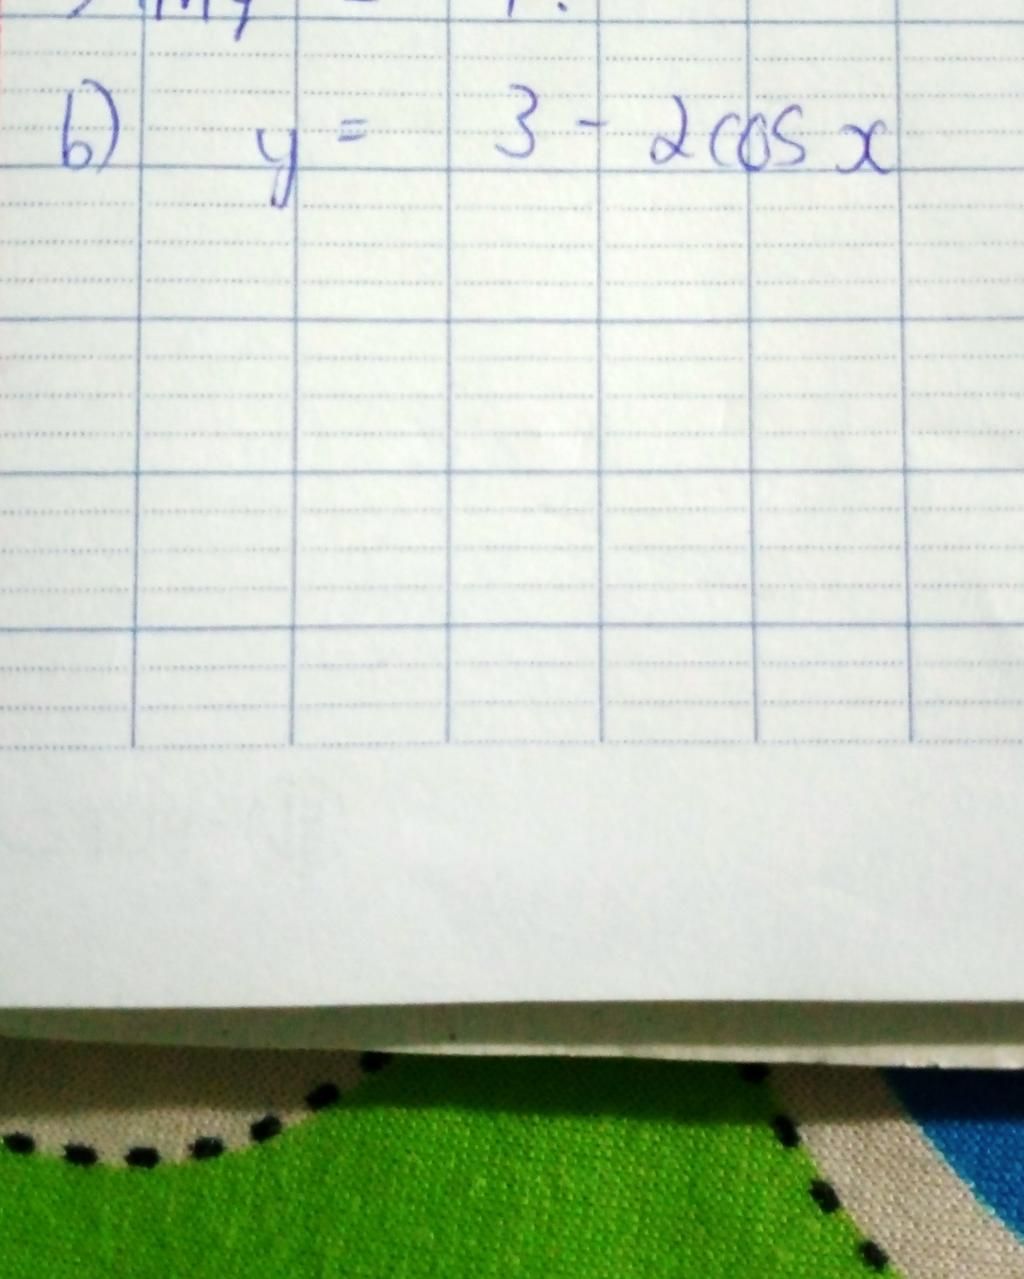 b) y = 3 - 2cos x